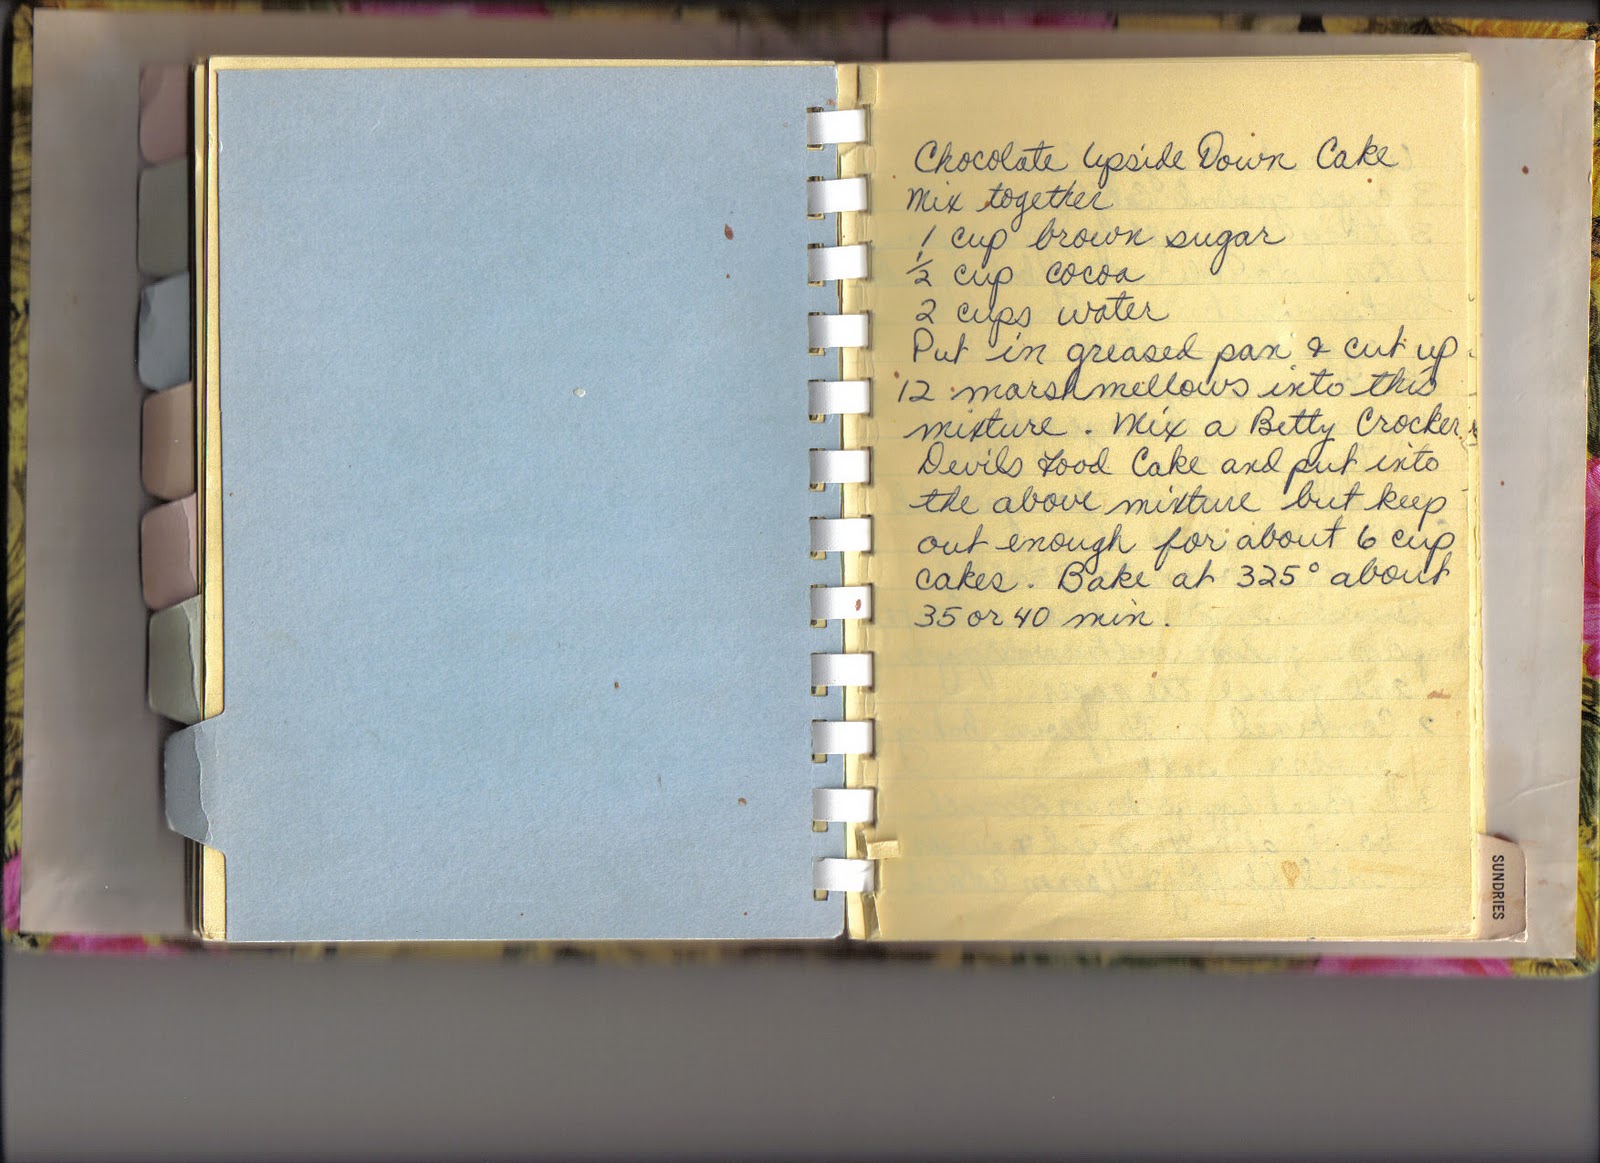 Chocolate Upside Down Cake
Mix together
1 cup brown sugar
1/2 cup cocoa
2 cups water
Put in greased pan & cut up
12 marshmellows into this
mixture. Mix a Betty Crocker
Devils Food Cake and put into
the above mixture but keep
out enough for about 6 cup
cakes. Bake at 325° about
35 or 40 min.
SUNDRIES